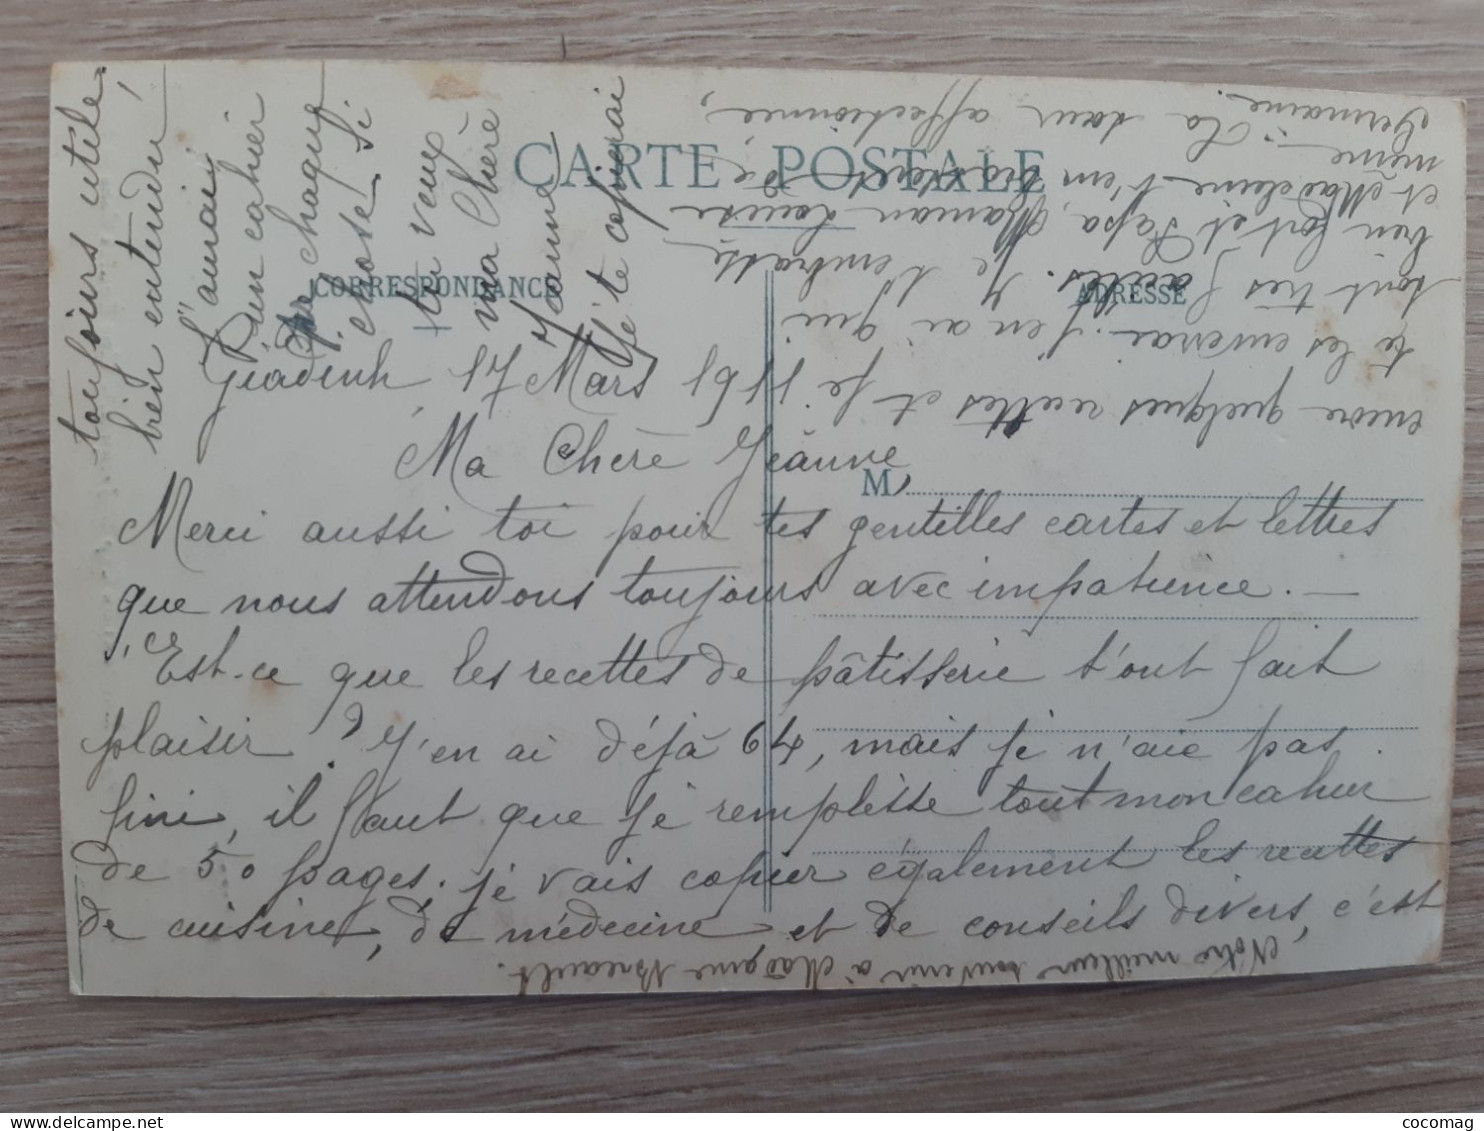 CARTE POSTALE
CORRESPONDANCE
ADRESSE
Giadinh 17 Mars 1191
Ma Chère Jeanne,
M
Merci aussi toi pour tes gentilles cartes et lettres
que nous attendons toujours avec impatience. —
Est-ce que les recettes de pâtisserie t'ont fait
plaisir ? J'en ai déjà 64, mais je n'aie pas
fini, il faut que je remplisse tout mon cahier
de 50 pages. je vais copier également les recettes
de cuisine, de médecine et de conseils divers, c'est
toujours utile
bien entendu !
J'aurai
un cahier
pr chaque
chose. Si
tu veux
ma Chère
Jeanne,
je te copierai
encore quelques recettes et je
te les enverrai. J'en ai qui
sont très faciles. Je t'embrasse
bien fort et Papa, Maman Louise
et Madeleine t'en font de
même. Ta sœur affectionnée,
Germaine.
Notre meilleur souvenir à Madame
cocomag